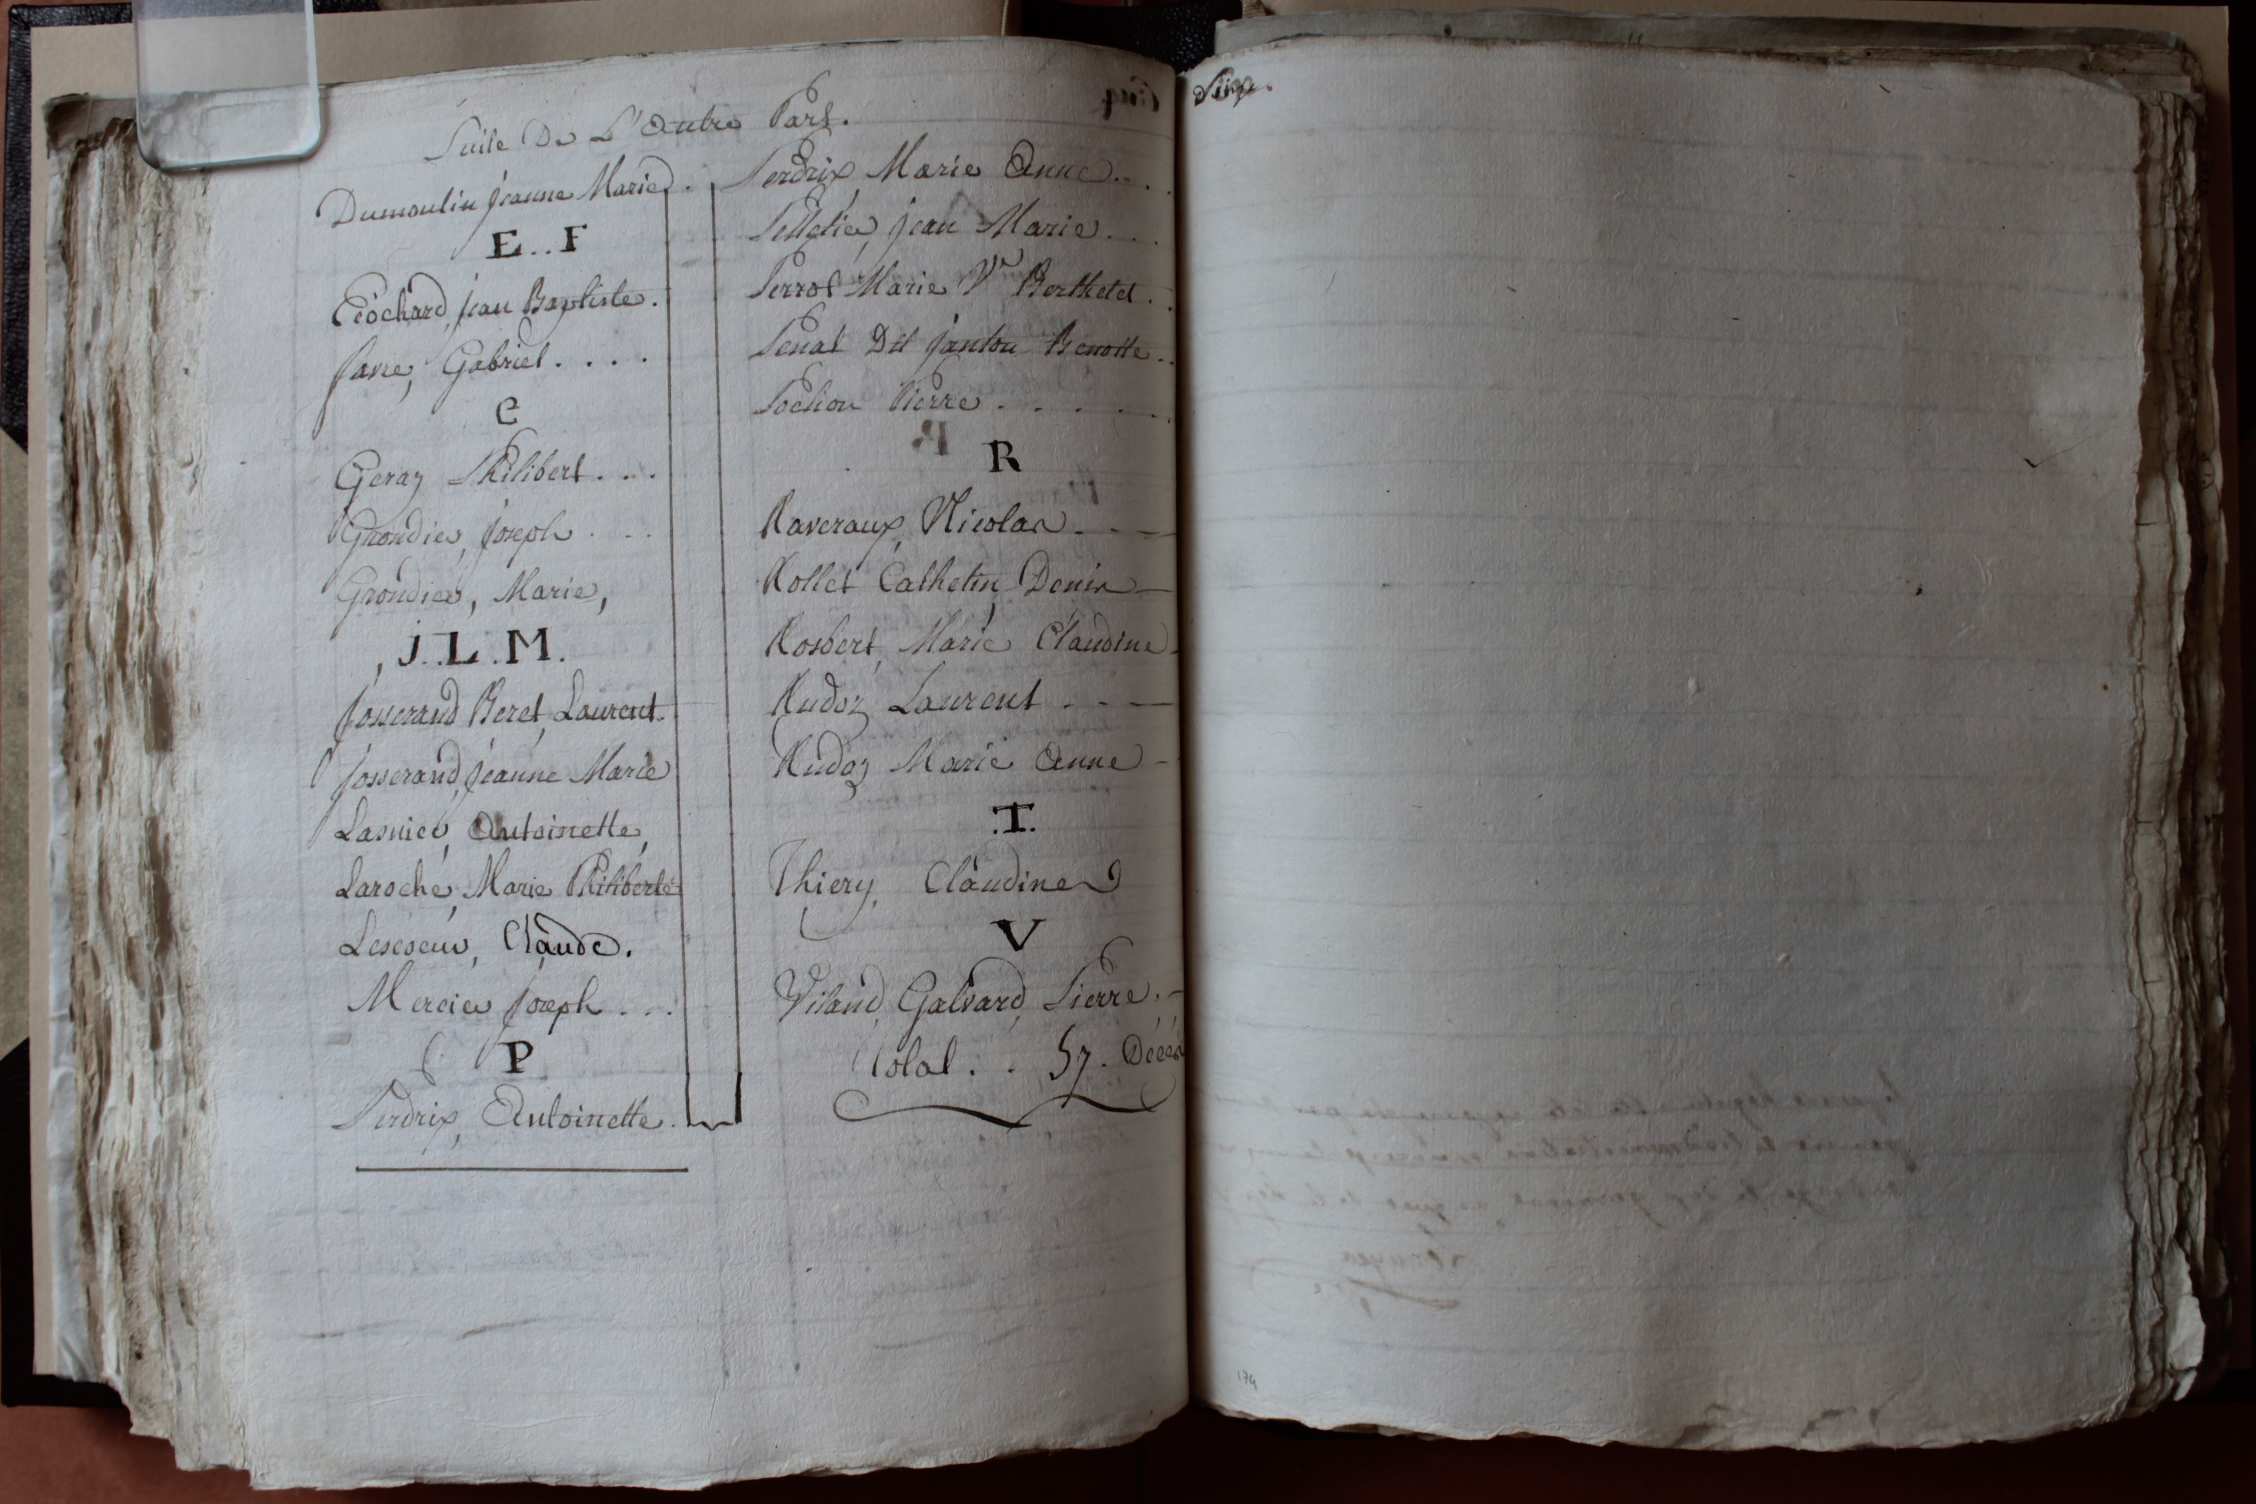 Suite De L'Autre Part.
Dumoulin Jeanne Marie.
E..F
Eéochard, Jean Baptiste.
Favre, Gabriel....
G
Geray Philibert...
Grondier, Joseph...
Grondier, Marie,
J..L.M.
Josserand Beret, Laurent.
Josserand, Jeanne Marie
Lasnier, Antoinette,
Laroche, Marie Philiberte
Claude.
Mercier Joseph...
P
Perdrix, Antoinette.
Perdrix Marie Anne...
Pelletier, Jean Marie...
Perrot Marie Ve Berthelet.
Penat Dit Janton Benotte..
Pochon Pierre.....
R
Raveraux, Nicolas...
Rollet Cathelin, Denis
Rosbert, Marie Claudine
Rudoz Laurent...
Rudoz Marie Anne
.T.
Thiery, Claudine
V
Vitaud, Galvard, Pierre.
Total.. 57. Décès
Six.
174